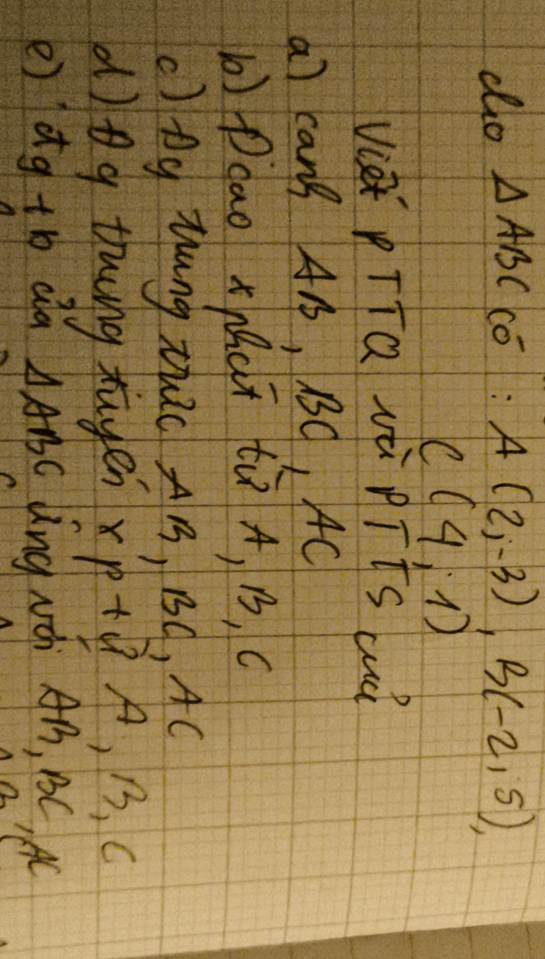 cho ΔABC có : A (2;-3), B(-2;5),
C (4;1)
Viết pTTQ và pTTS của
a) cạnh AB, BC, AC
b) Đcao x phát từ A, B, C
c) Đg trung trực AB, BC, AC
d) Đg trung tuyến x p t ừ A, B, C
e) đg t b của ΔABC ứng với AB, BC, AC